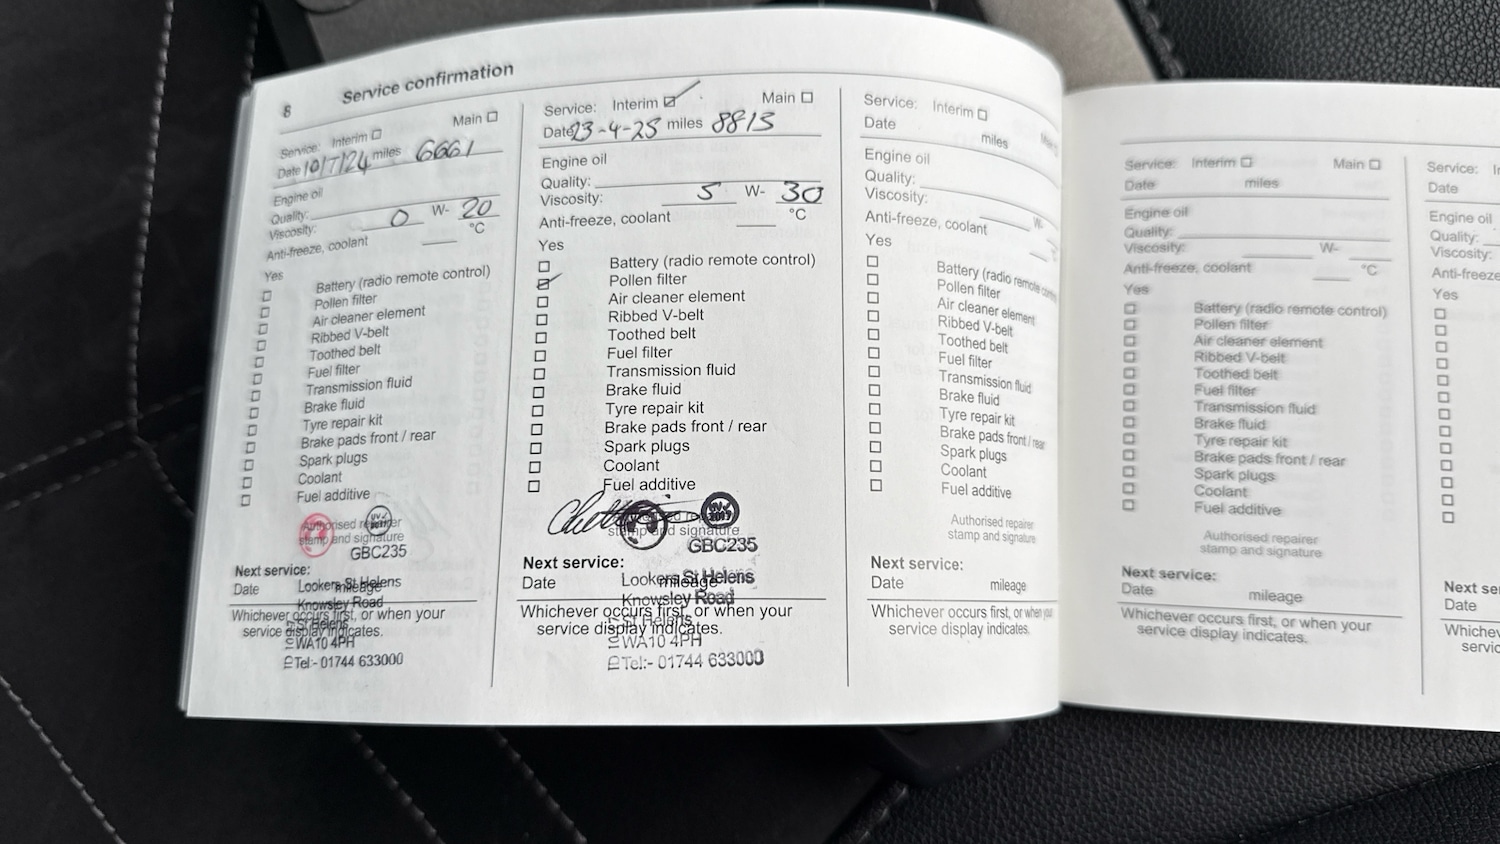 8 Service confirmation
Service: Interim Main
Date 10/7/24 miles 6661
Engine oil
Quality:
Viscosity: 0 W- 20
Anti-freeze, coolant °C
Yes
Battery (radio remote control)
Pollen filter
Air cleaner element
Ribbed V-belt
Toothed belt
Fuel filter
Transmission fluid
Brake fluid
Tyre repair kit
Brake pads front / rear
Spark plugs
Coolant
Fuel additive
Authorised repairer
stamp and signature
GBC235
Next service:
Date mileage
Lookers St Helens
Knowsley Road
St Helens
WA10 4PH
Tel:- 01744 633000
Whichever occurs first, or when your
service display indicates.
Service: Interim Main
Date 23-4-25 miles 8813
Engine oil
Quality:
Viscosity: 5 W- 30
Anti-freeze, coolant °C
Yes
Battery (radio remote control)
Pollen filter
Air cleaner element
Ribbed V-belt
Toothed belt
Fuel filter
Transmission fluid
Brake fluid
Tyre repair kit
Brake pads front / rear
Spark plugs
Coolant
Fuel additive
stamp and signature
GBC235
Next service:
Date mileage
Lookers St Helens
Knowsley Road
St Helens
WA10 4PH
Tel:- 01744 633000
Whichever occurs first, or when your
service display indicates.
Service: Interim
Date miles
Engine oil
Quality:
Viscosity: W-
Anti-freeze, coolant
Yes
Battery (radio remote
Pollen filter
Air cleaner element
Ribbed V-belt
Toothed belt
Fuel filter
Transmission fluid
Brake fluid
Tyre repair kit
Brake pads front / rear
Spark plugs
Coolant
Fuel additive
Authorised repairer
stamp and signature
Next service:
Date mileage
Whichever occurs first, or when your
service display indicates.
Service: Interim Main
Date miles
Engine oil
Quality:
Viscosity: W-
Anti-freeze, coolant °C
Yes
Battery (radio remote control)
Pollen filter
Air cleaner element
Ribbed V-belt
Toothed belt
Fuel filter
Transmission fluid
Brake fluid
Tyre repair kit
Brake pads front / rear
Spark plugs
Coolant
Fuel additive
Authorised repairer
stamp and signature
Next service:
Date mileage
Whichever occurs first, or when your
service display indicates.
Service:
Date
Engine oil
Quality:
Viscosity:
Anti-freeze
Yes
Next se
Date
Whichev
servic